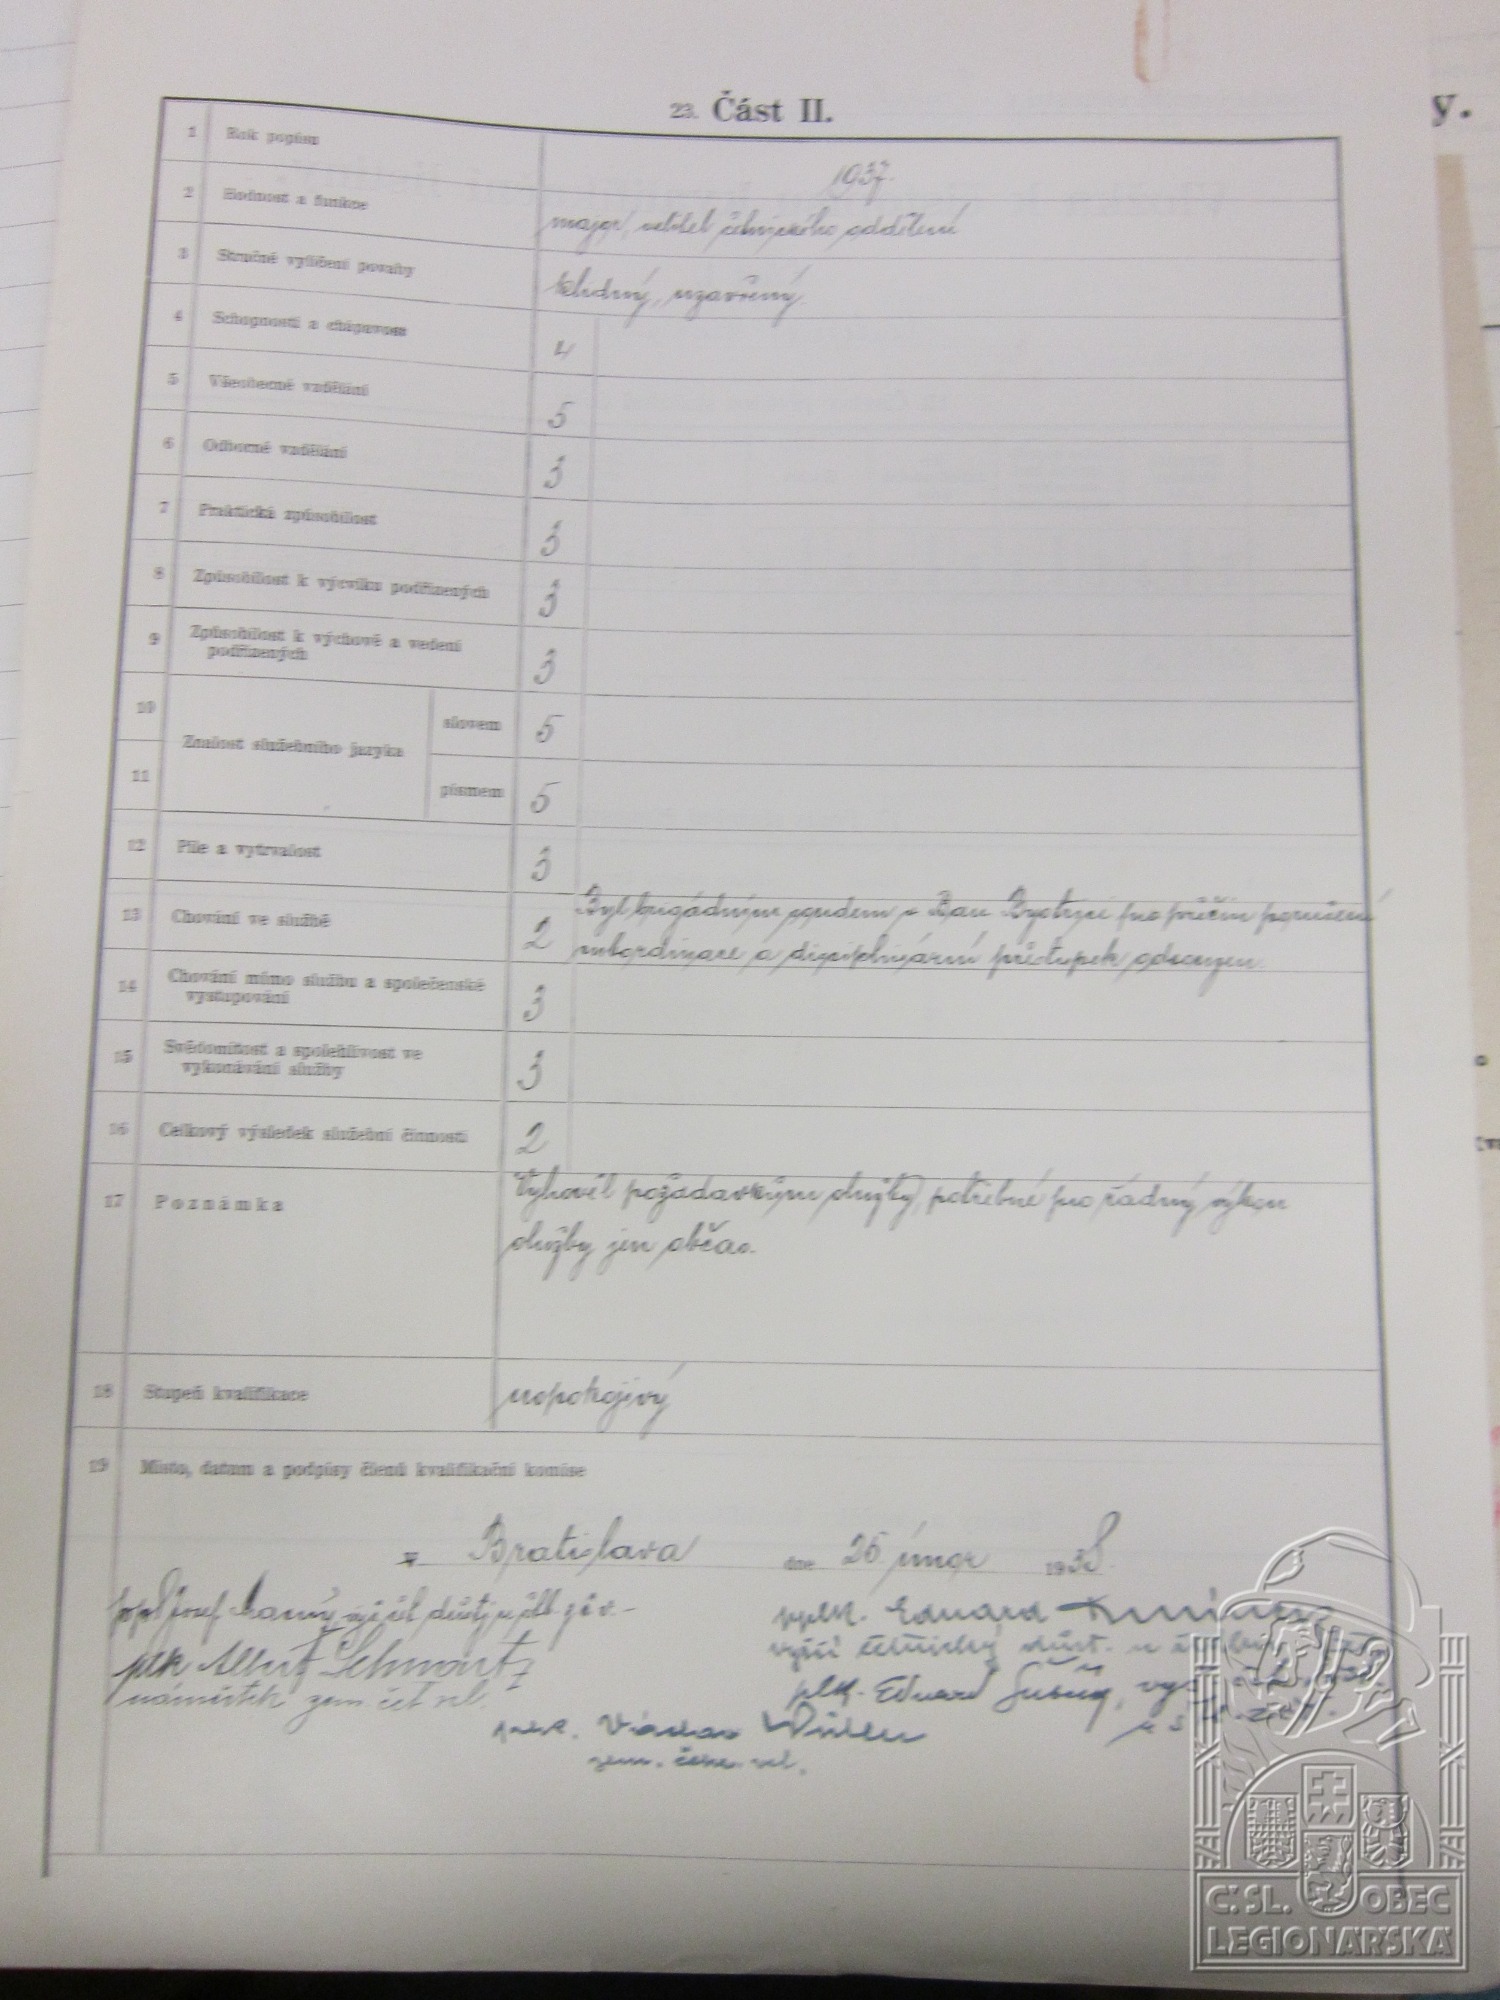 23. Část II.
y.
1 Rok popisu 1937.
2 Hodnost a funkce major, velitel četnického oddělení
3 Stručné vylíčení povahy klidný, uzavřený.
4 Schopnosti a chápavost 4
5 Všeobecné vzdělání 5
6 Odborné vzdělání 3
7 Praktická způsobilost 3
8 Způsobilost k výcviku podřízených 3
9 Způsobilost k výchově a vedení
podřízených 3
10 slovem 5
Znalost služebního jazyka
11 písmem 5
12 Píle a vytrvalost 3
13 Chování ve službě 2 Byl brigádním soudem v Ban Bystrici pro přečin porušení
subordinace a disciplinární přestupek odsouzen.
14 Chování mimo službu a společenské
vystupování 3
15 Svědomitost a spolehlivost ve
vykonávání služby 3
16 Celkový výsledek služební činnosti 2
17 Poznámka Vyhověl požadavkům služby, potřebné pro řádný výkon
služby jen občas.
18 Stupeň kvalifikace uspokojivý
19 Místo, datum a podpisy členů kvalifikační komise
v Bratislava dne 26. únor 1938.
Josef
pplk. Eduard
plk Albert Schwartz
vyšší četnický důst.
náměstek zem čet vel.
plk. Eduard
Václav
zem. četn. vel.
Č.SL. OBEC
LEGIONÁŘSKÁ